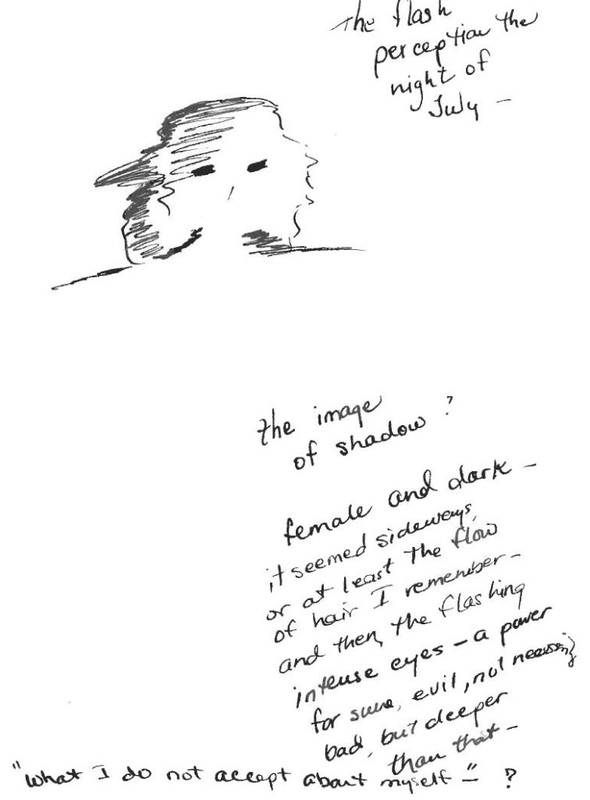 The flash
perception the
night of
July –
the image
of shadow ?
female and dark –
it seemed sideways,
or at least the flow
of hair I remember –
and then, the flashing
intense eyes – a power
for sure, evil, not
bad, but deeper
than that –
"What I do not accept about myself –" ?